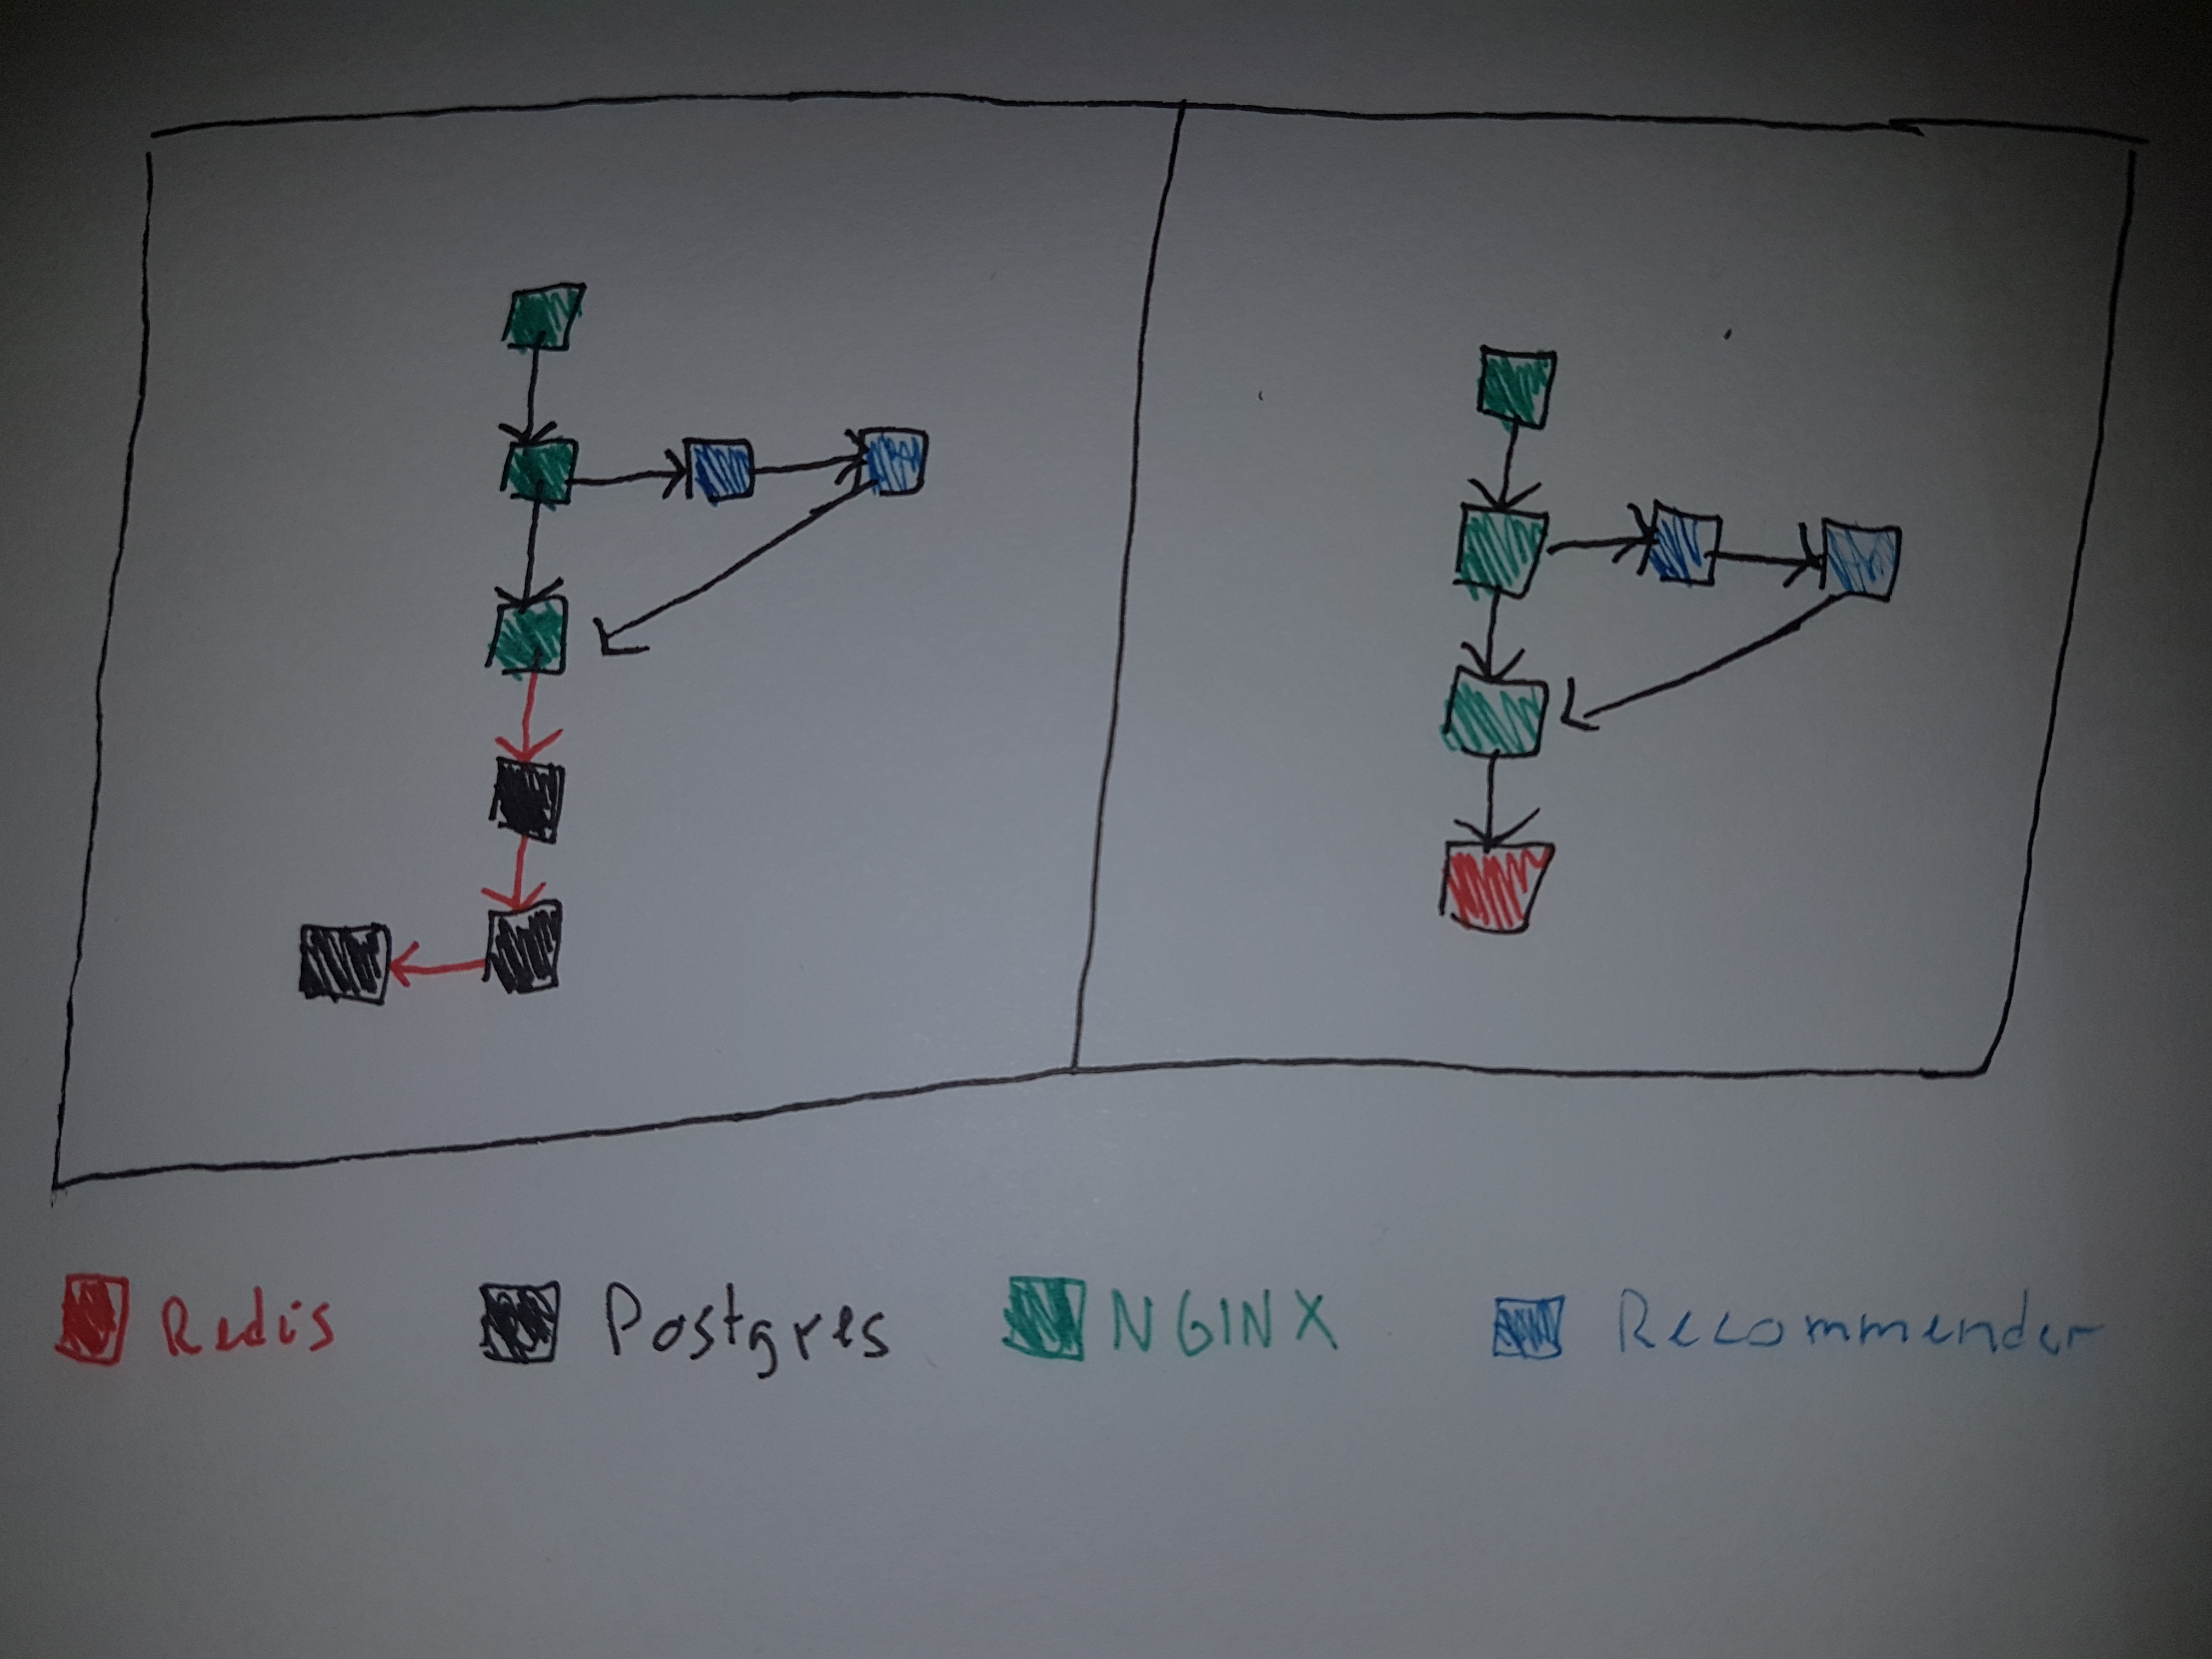 Redis Postgres NGINX Recommender